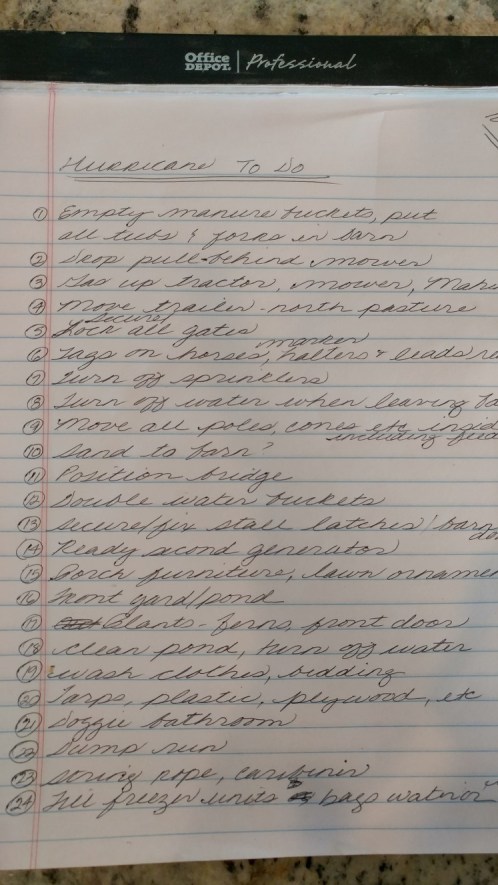 Office DEPOT. | Professional
Hurricane To Do
① Empty manure buckets, put
all tubs & forks in barn
② Drop pull-behind mower
③ Gas up tractor, mower,
④ Move trailer - north pasture
secure/
⑤ Lock all gates
marker
⑥ Tags on horses, halters & leads
⑦ Turn off sprinklers
⑧ Turn off water when leaving
⑨ Move all poles, cones etc
including
⑩ Sand to barn?
⑪ Position bridge
⑫ Double water buckets
⑬ Secure/fix stall latches/barn
⑭ Ready second generator
⑮ Porch furniture, lawn
⑯ Front yard/pond
⑰ Plants - ferns, front door
⑱ Clean pond, turn off water
⑲ Wash clothes, bedding
⑳ Tarps, plastic, plywood, etc
㉑ Doggie bathroom
㉒ Dump run
㉓ String rope,
㉔ Fill freezer units bags water